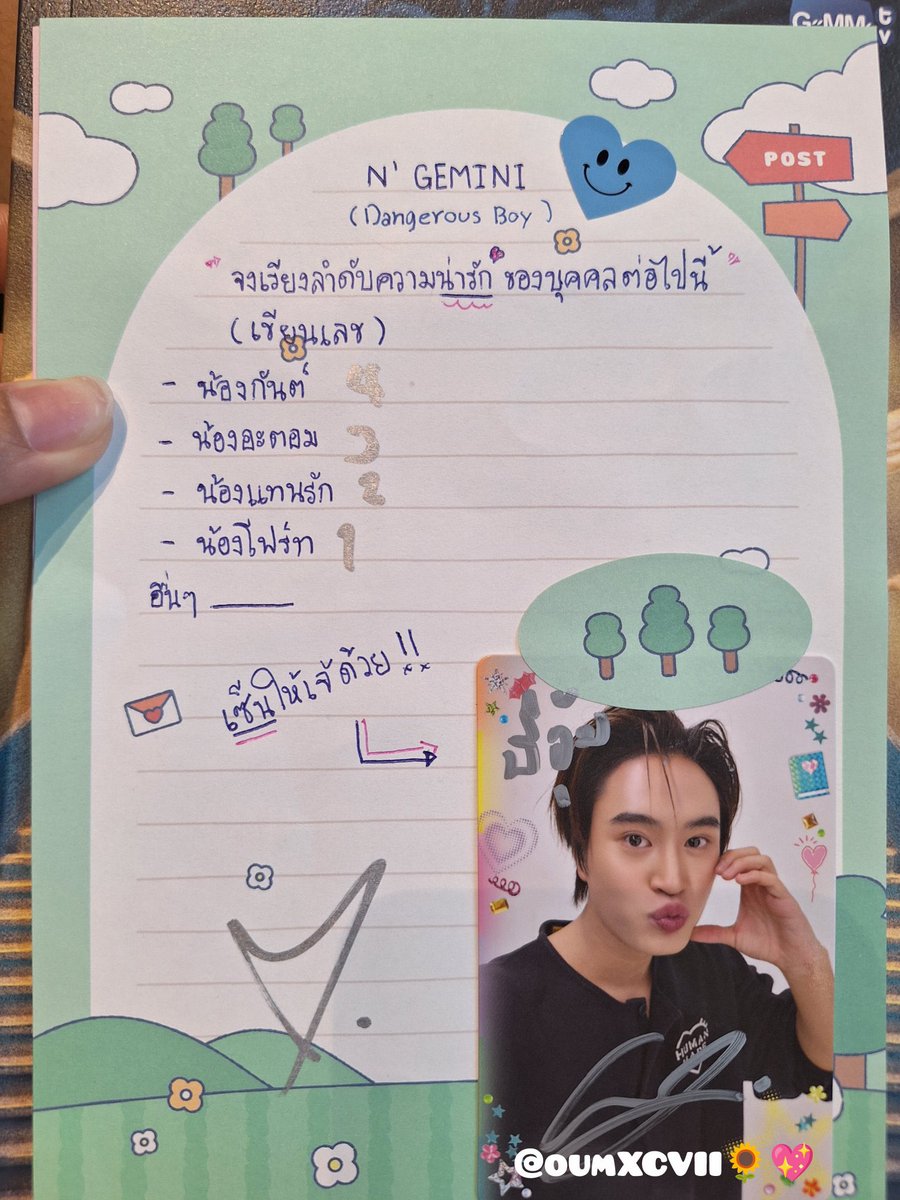 GMM
tv
POST
N' GEMINI
(Dangerous Boy)
" จงเรียงลำดับความน่ารัก ของบุคคลต่อไปนี้ "
(เขียนเลข)
- น้องกันต์ 4
- น้องอะตอม 3
- น้องแทนรัก 2
- น้องโฟร์ท 1
อื่นๆ ____
เซ็นให้เจ้ด้วย!!
HUMAN
MADE
@OUMXCVII🌻💖